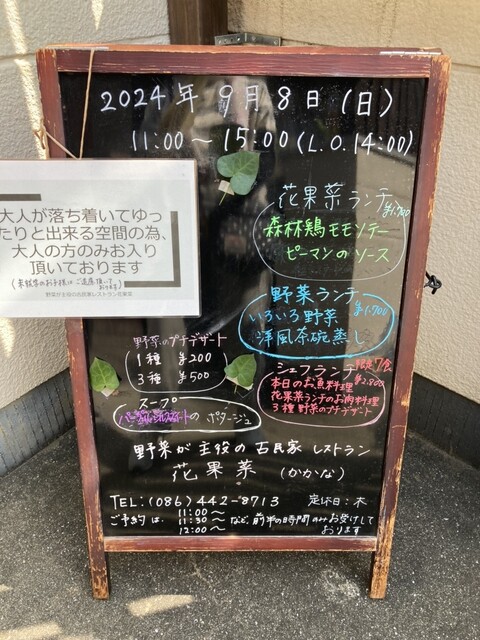 2024年 9月 8日 (日)
11:00〜 15:00 (L.O.14:00)
大人が落ち着いてゆっ
たりと出来る空間の為、
大人の方のみお入り
頂いております
(未就学のお子様はご遠慮頂いて
おります)
野菜が主役の古民家レストラン花果菜
花果菜ランチ
¥1,700
森林鶏モモソテー
ピーマンのソース
野菜ランチ
¥1,700
いろいろ野菜
洋風茶碗蒸し
野菜のプチデザート
1種 ¥200
3種 ¥500
シェフランチ 限定7食
¥2,800
本日のお魚料理
花果菜ランチのお肉料理
3種 野菜のプチデザート
スープ
の ポタージュ
野菜が 主役の 古民家 レストラン
花果菜 (かかな)
TEL:(086)442-8713 定休日:木
ご予約は、
11:00〜
11:30〜
12:00〜
など、前半の時間のみお受けして
おります